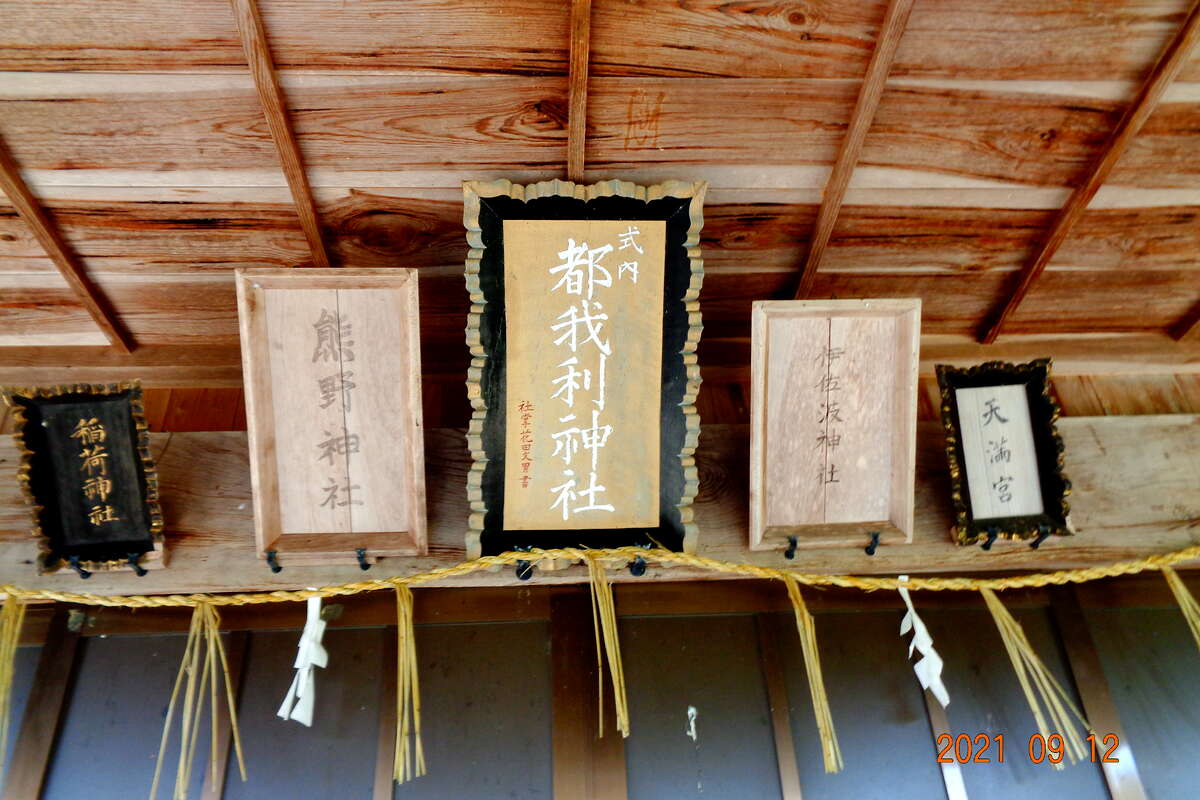 稲荷神社
熊野神社
式内
都我利神社
社掌花田文男書
伊佐波神社
天満宮
2021 09 12